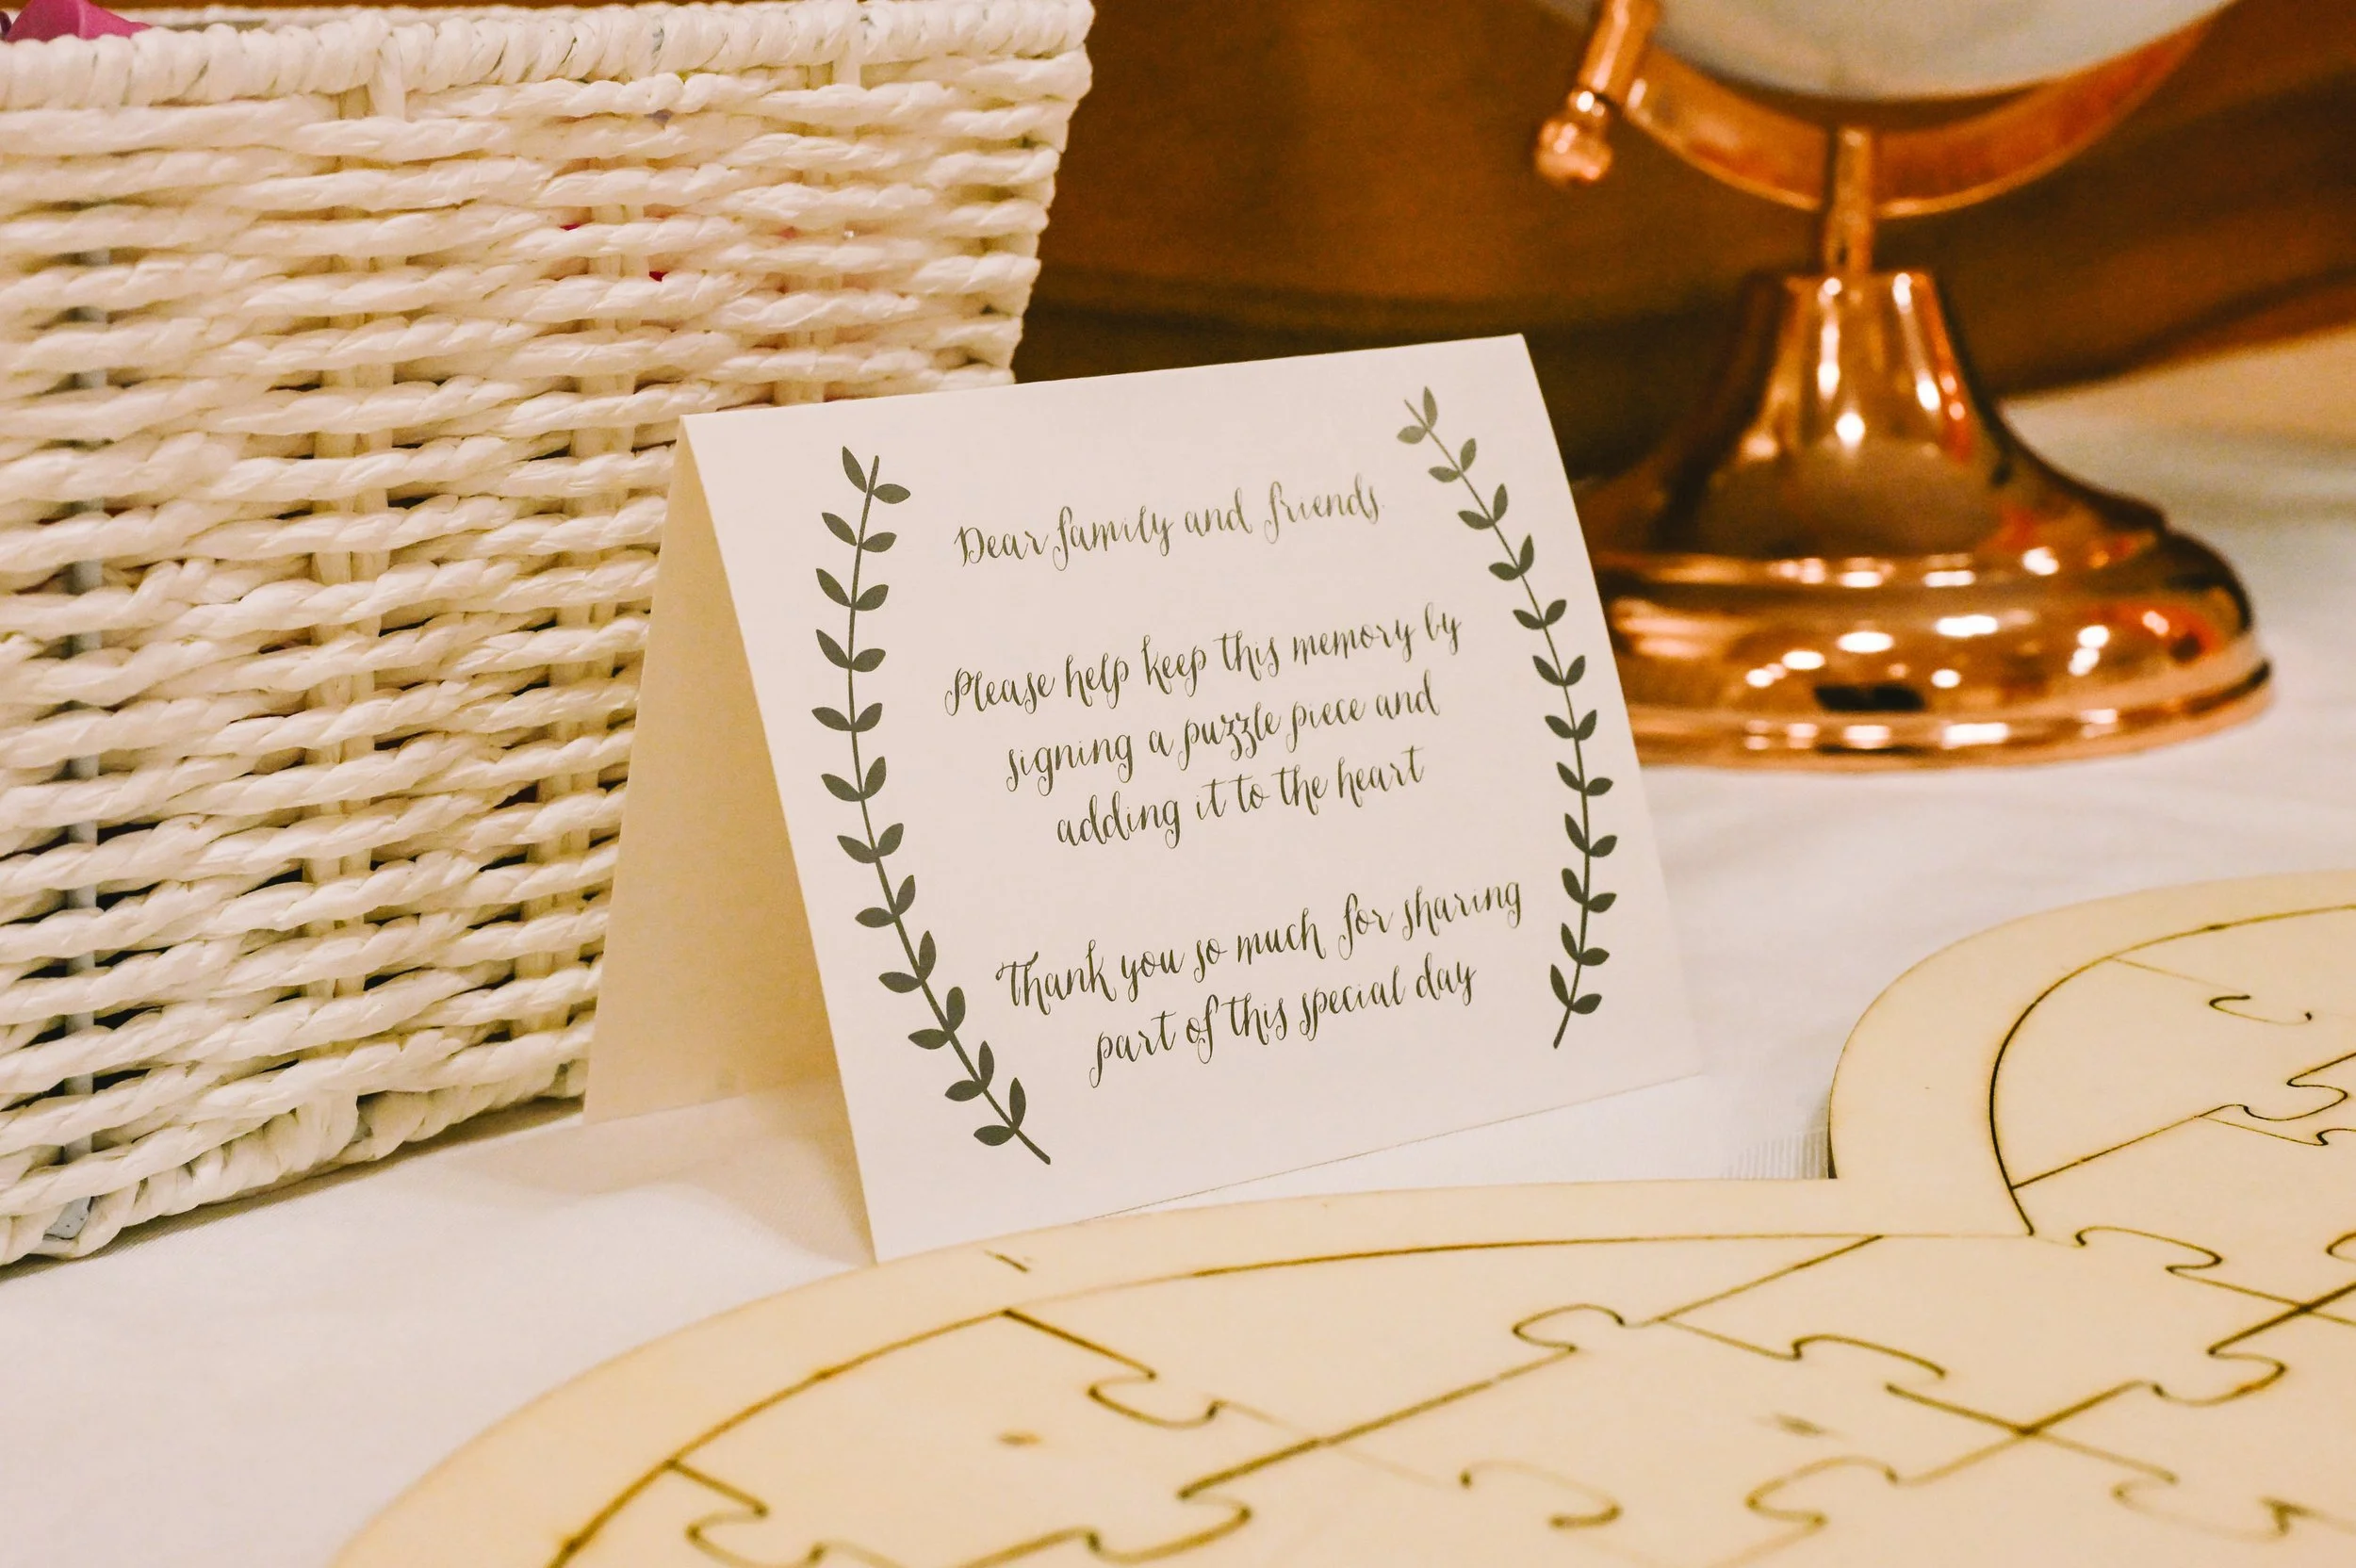 Dear family and friends
Please help keep this memory by
signing a puzzle piece and
adding it to the heart
Thank you so much for sharing
part of this special day